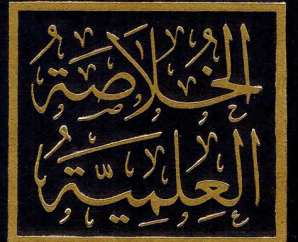 الخُلَاصَةُ
العِلْمِيَّةُ